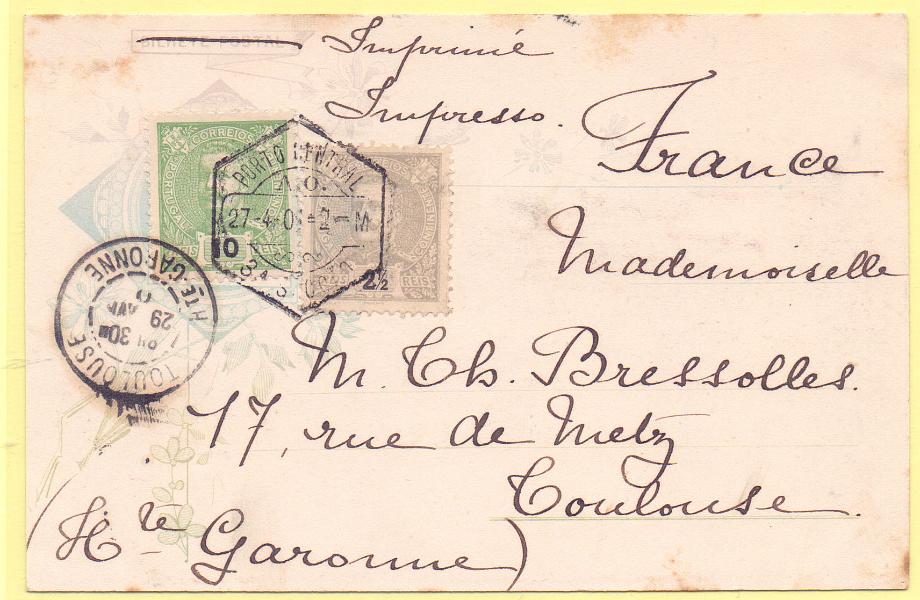 BILHETE POSTAL
Imprimé
Impresso.
France
Mademoiselle
M. Th. Bressolles.
17, rue de Metz
Toulouse.
(Hte Garonne)
CORREIOS
PORTUGAL
10
CORREIOS
2½
REIS
PORTO CENTRAL
27-4-0
M
TOULOUSE
Hte GARONNE
30
29 AVR